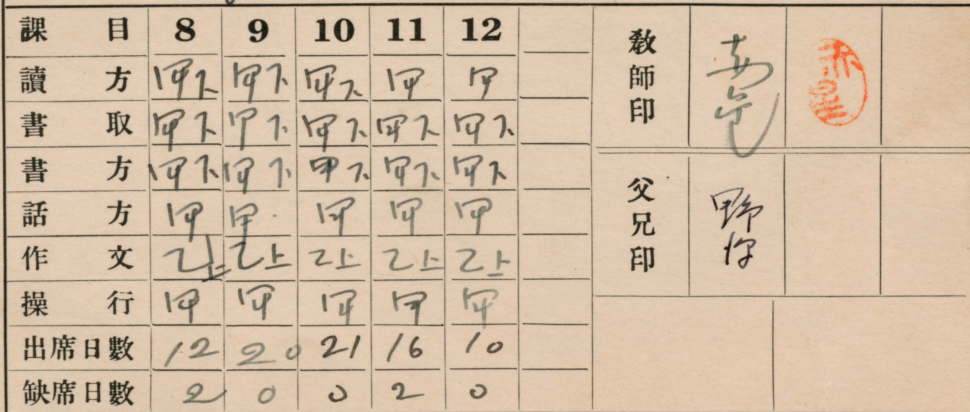 課目 8 9 10 11 12
讀方 甲下 甲下 甲下 甲 甲
書取 甲下 甲下 甲下 甲下 甲下
書方 甲下 甲下 甲下 甲下 甲下
話方 甲 甲 甲 甲 甲
作文 乙上 乙上 乙上 乙上 乙上
操行 甲 甲 甲 甲 甲
出席日數 12 20 21 16 10
缺席日數 2 0 0 2 0
教師印
父兄印